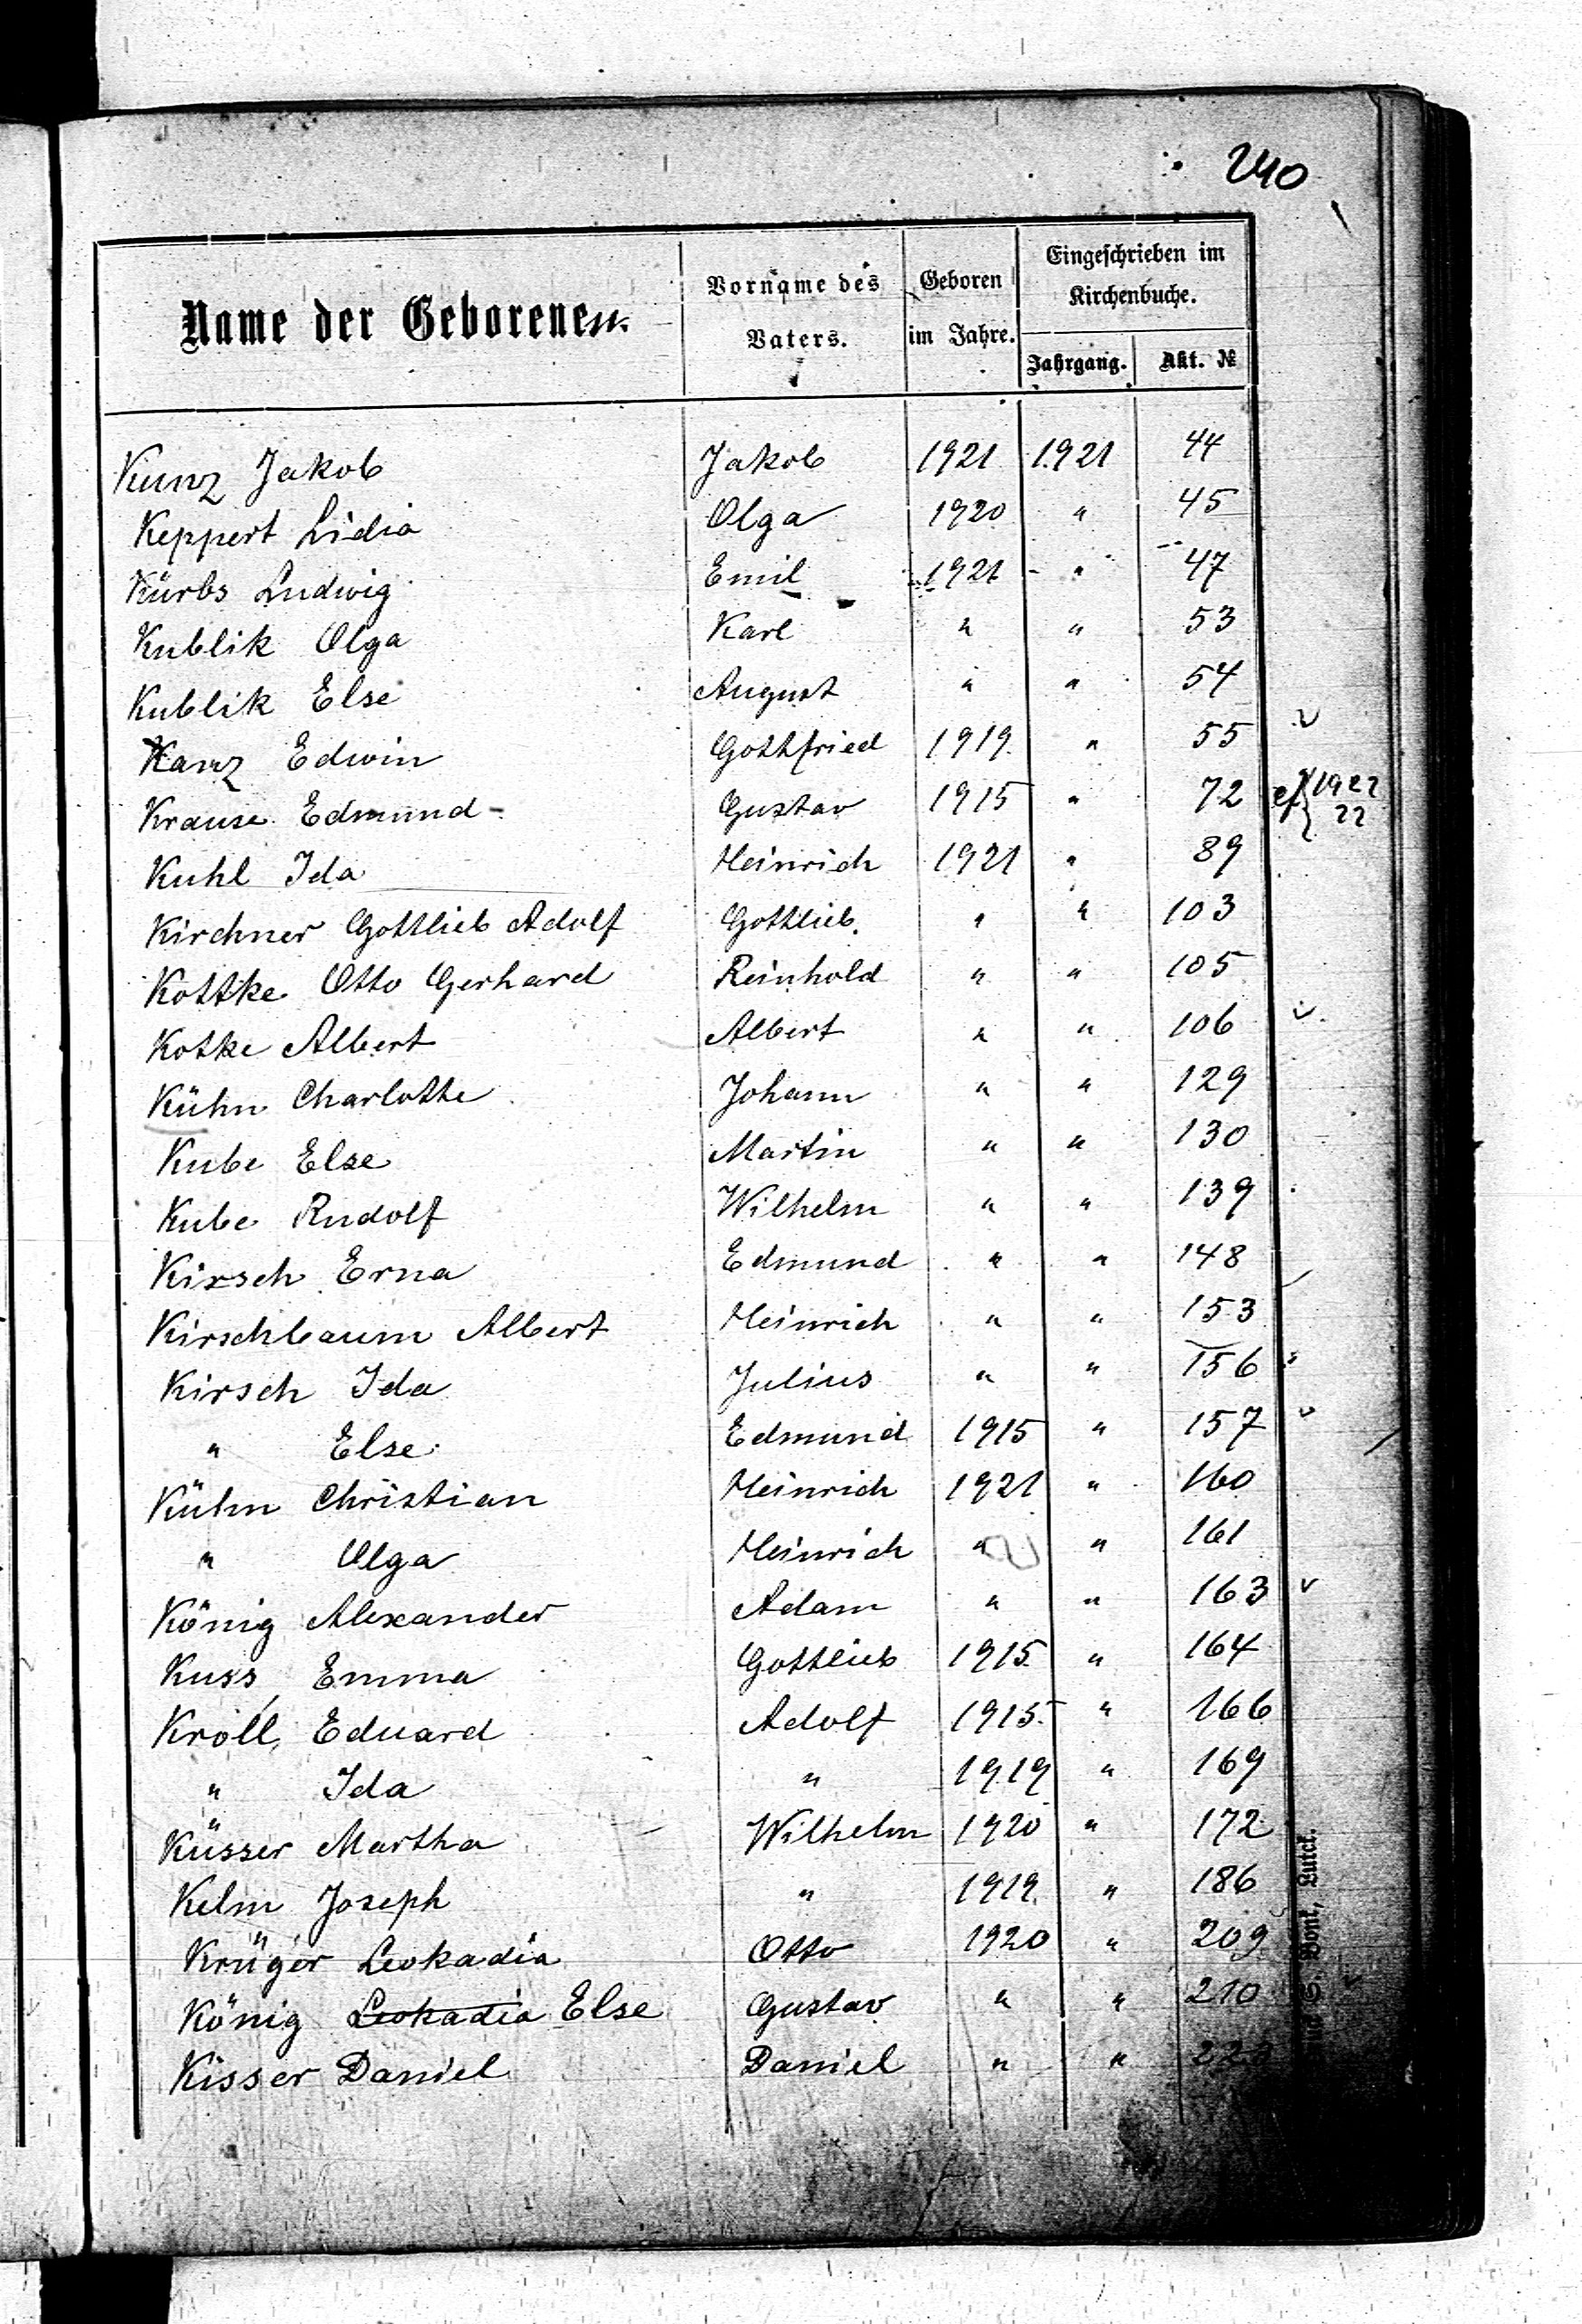 240
Name der Geborenen. Vorname des Vaters. Geboren im Jahre. Eingeschrieben im Kirchenbuche.
Jahrgang. Akt. №
Kunz Jakob Jakob 1921 1921 44
Keppert Lidia Olga 1920 " 45
Kürbs Ludwig Emil 1921 " 47
Kublik Olga Karl " " 53
Kublik Else August " " 54
Kanz Edwin Gottfried 1919. " 55
Krause Edmund Gustav 1915 " 72
Kuhl Ida Heinrich 1921 " 89
Kirchner Gottlieb Adolf Gottlieb. " " 103
Kottke Otto Gerhard Reinhold " " 105
Kotke Albert Albert " " 106
Kühn Charlotte Johann " " 129
Kube Else Martin " " 130
Kube Rudolf Wilhelm " " 139
Kirsch Erna Edmund " " 148
Kirschbaum Albert Heinrich " " 153
Kirsch Ida Julius " " 156
" Else Edmund 1915 " 157
Kühn Christian Heinrich 1921 " 160
" Olga Heinrich " " 161
König Alexander Adam " " 163
Kuss Emma Gottlieb 1915. " 164
Kroll, Eduard Adolf 1915. " 166
" Ida " 1919 " 169
Küsser Martha Wilhelm 1920 " 172
Kelm Joseph " 1919. " 186
Krüger Leokadia Otto 1920 " 209
König Leokadia Else Gustav " " 210
Kisser Daniel Daniel " "